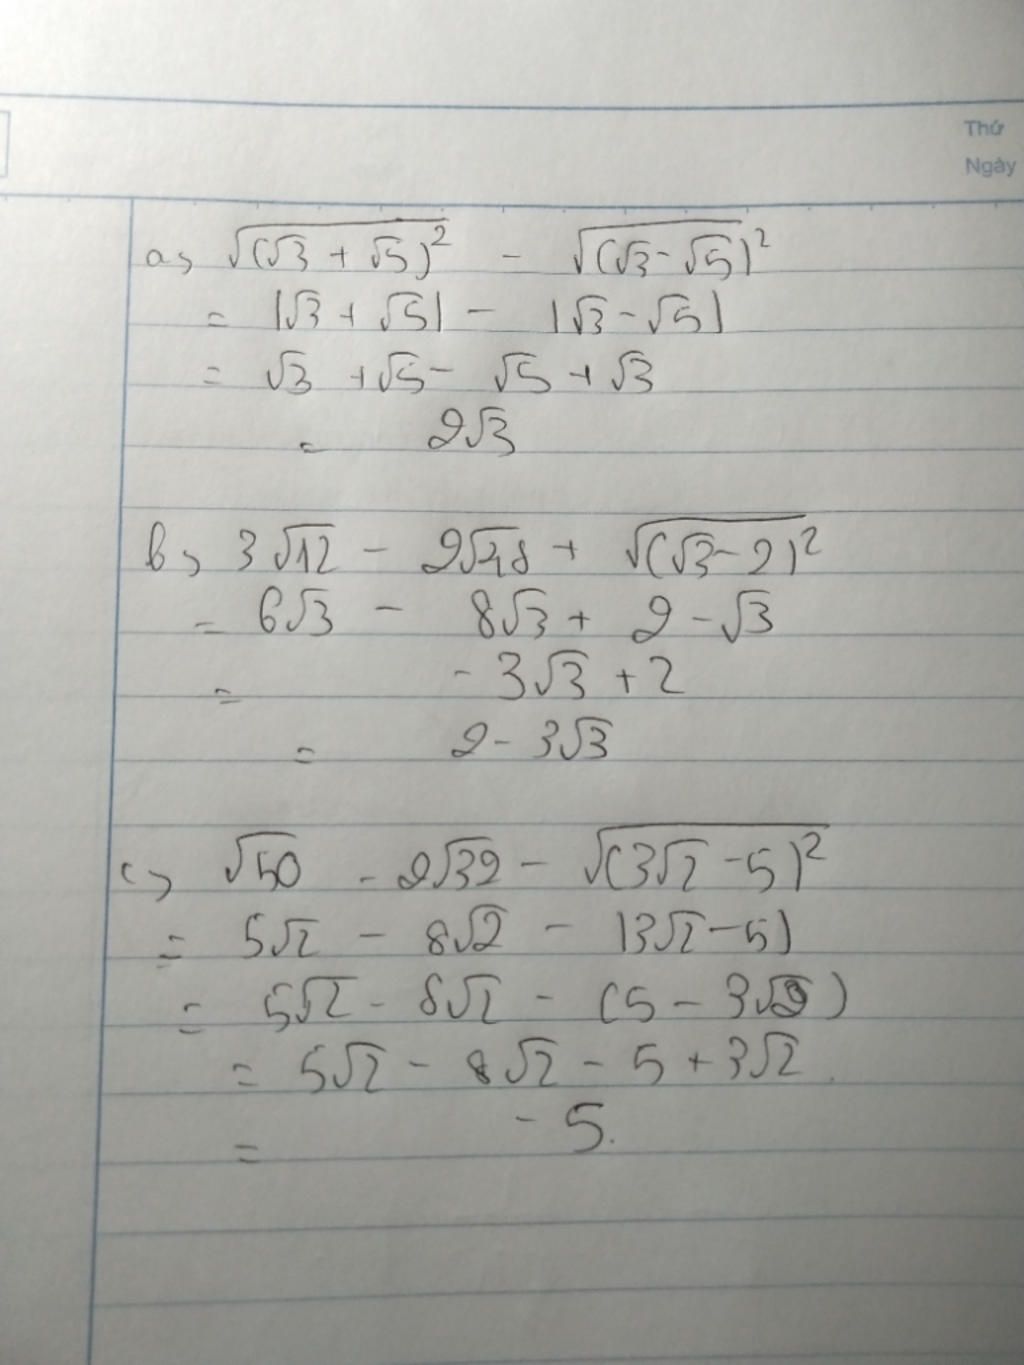 Thứ
Ngày
a, √(√3 + √5)² - √(√3 - √5)²
= |√3 + √5| - |√3 - √5|
= √3 + √5 - √5 + √3
= 2√3
b, 3√12 - 2√48 + √(√3 - 2)²
= 6√3 - 8√3 + 2 - √3
= - 3√3 + 2
= 2 - 3√3
c, √50 - 2√32 - √(3√2 - 5)²
= 5√2 - 8√2 - |3√2 - 5|
= 5√2 - 8√2 - (5 - 3√2)
= 5√2 - 8√2 - 5 + 3√2
= - 5.